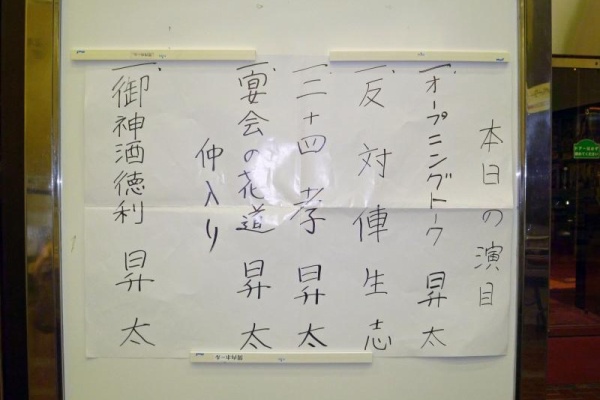 本日の演目
一、オープニングトーク 昇太
一、反対俥 生志
一、二十四孝 昇太
仲入り
一、宴会の花道 昇太
一、御神酒徳利 昇太